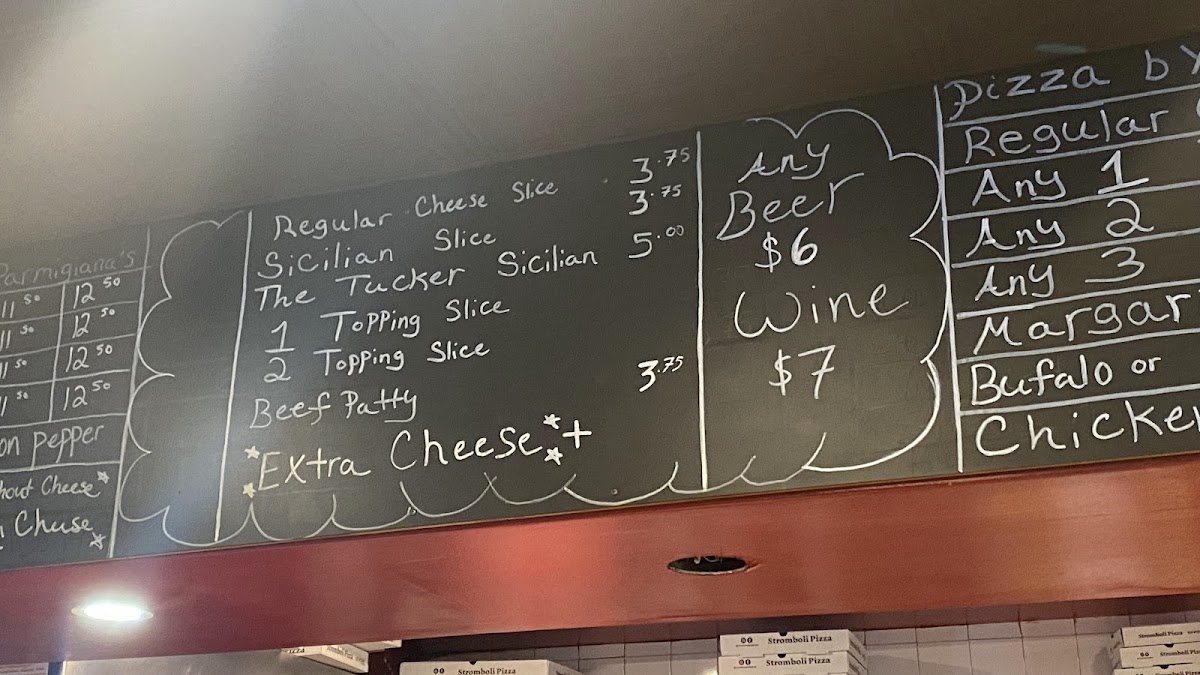 Parmigiana's
11 50 12 50
11 50 12 50
11 50 12 50
11 50 12 50
on pepper
hout Cheese
Chuse
Regular Cheese Slice 3.75
Sicilian Slice 3.75
The Tucker Sicilian 5.00
1 Topping Slice
2 Topping Slice
Beef Patty 3.75
Extra Cheese +
Any
Beer
$6
Wine
$7
Pizza by
Regular
Any 1
Any 2
Any 3
Margar
Bufalo or
Chicke
Stromboli Pizza
Stromboli Pizza
Stromboli Pizza
Stromboli Pizza